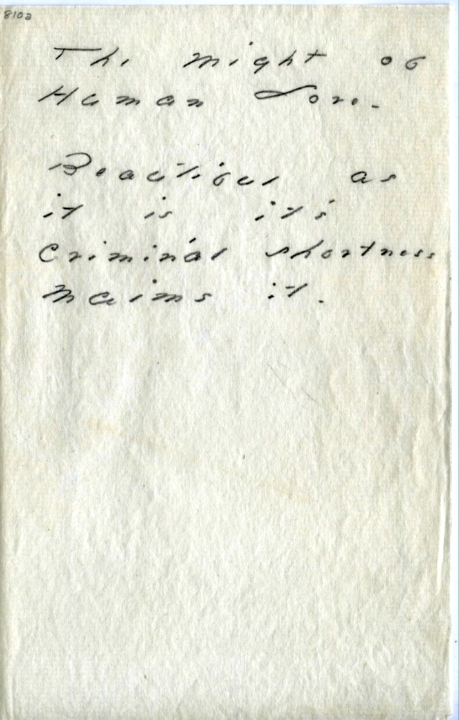 810a
The might of
Human Love.
Beautiful as
it is it's
Criminal shortness
maims it.